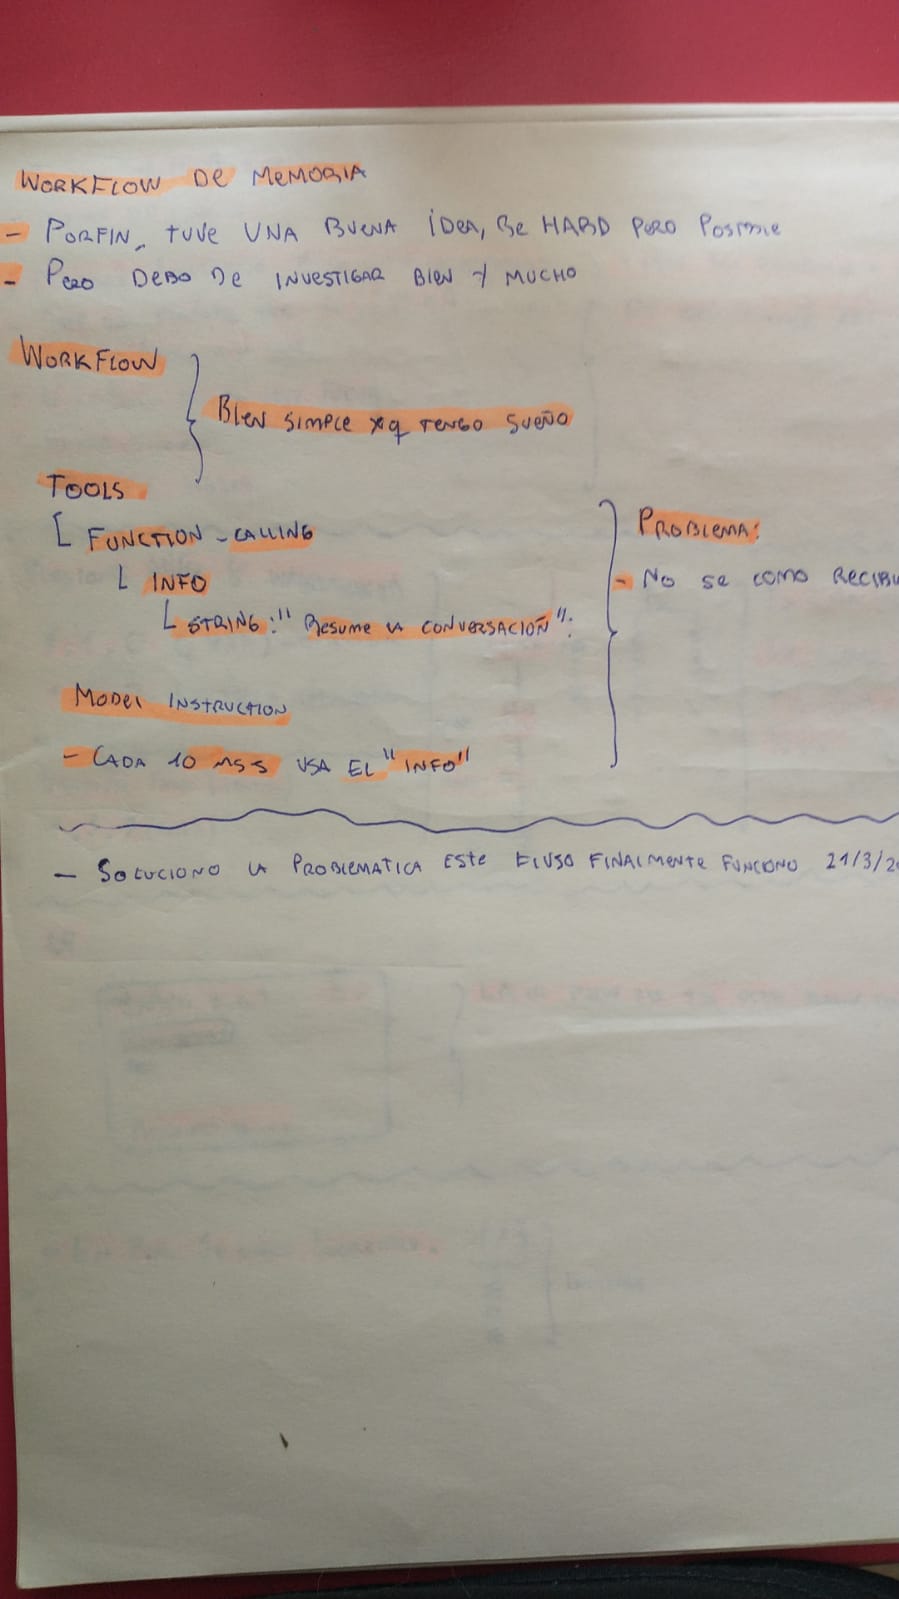 WORKFLOW DE MEMORIA
- PORFIN, TUVE UNA BUENA IDEA, Be HARD PERO POSIBLE
- PERO DEBO DE INVESTIGAR BIEN Y MUCHO
WORKFLOW
BIEN SIMPLE xq TENGO SUEÑO
TOOLS
FUNCTION - CALLING
INFO
STRING: "Resume la CONVERSACIÓN":
PROBLEMA:
- No se como
MODEL INSTRUCTION
- CADA 10 MSS USA EL "INFO"
- SOLUCIONO LA PROBLEMATICA ESTE FLUJO FINALMENTE FUNCIONO 21/3/